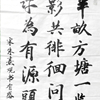 半畝方塘一
影共徘徊問
為有源頭
宋朱熹觀書有感